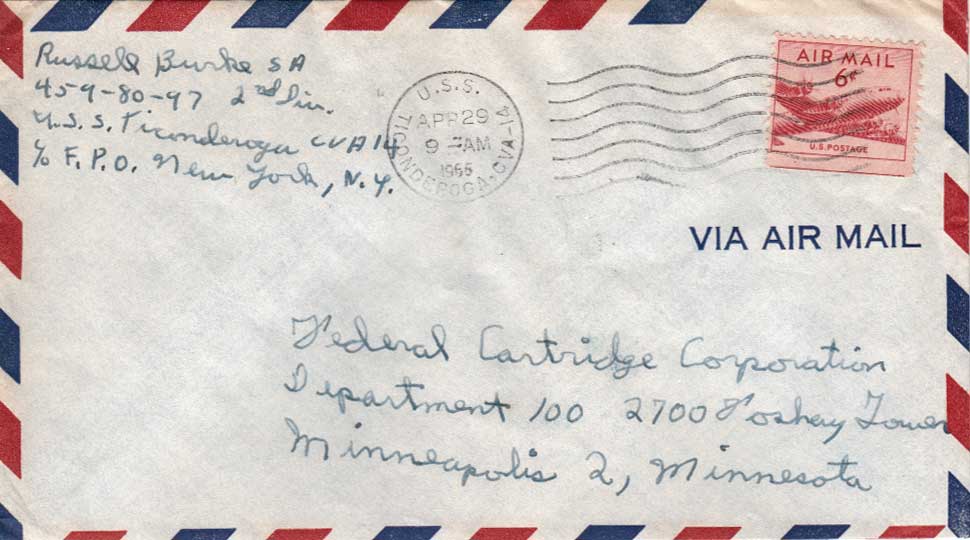 Russell Burke SA
459-80-97 2nd Div.
U.S.S. Ticonderoga CVA 14
c/o F.P.O. New York, N.Y.
U.S.S. TICONDEROGA·CVA-14
APR 29
9 - AM
1955
AIR MAIL
6¢
U.S. POSTAGE
VIA AIR MAIL
Federal Cartridge Corporation
Department 100 2700 Foshay Tower
Minneapolis 2, Minnesota